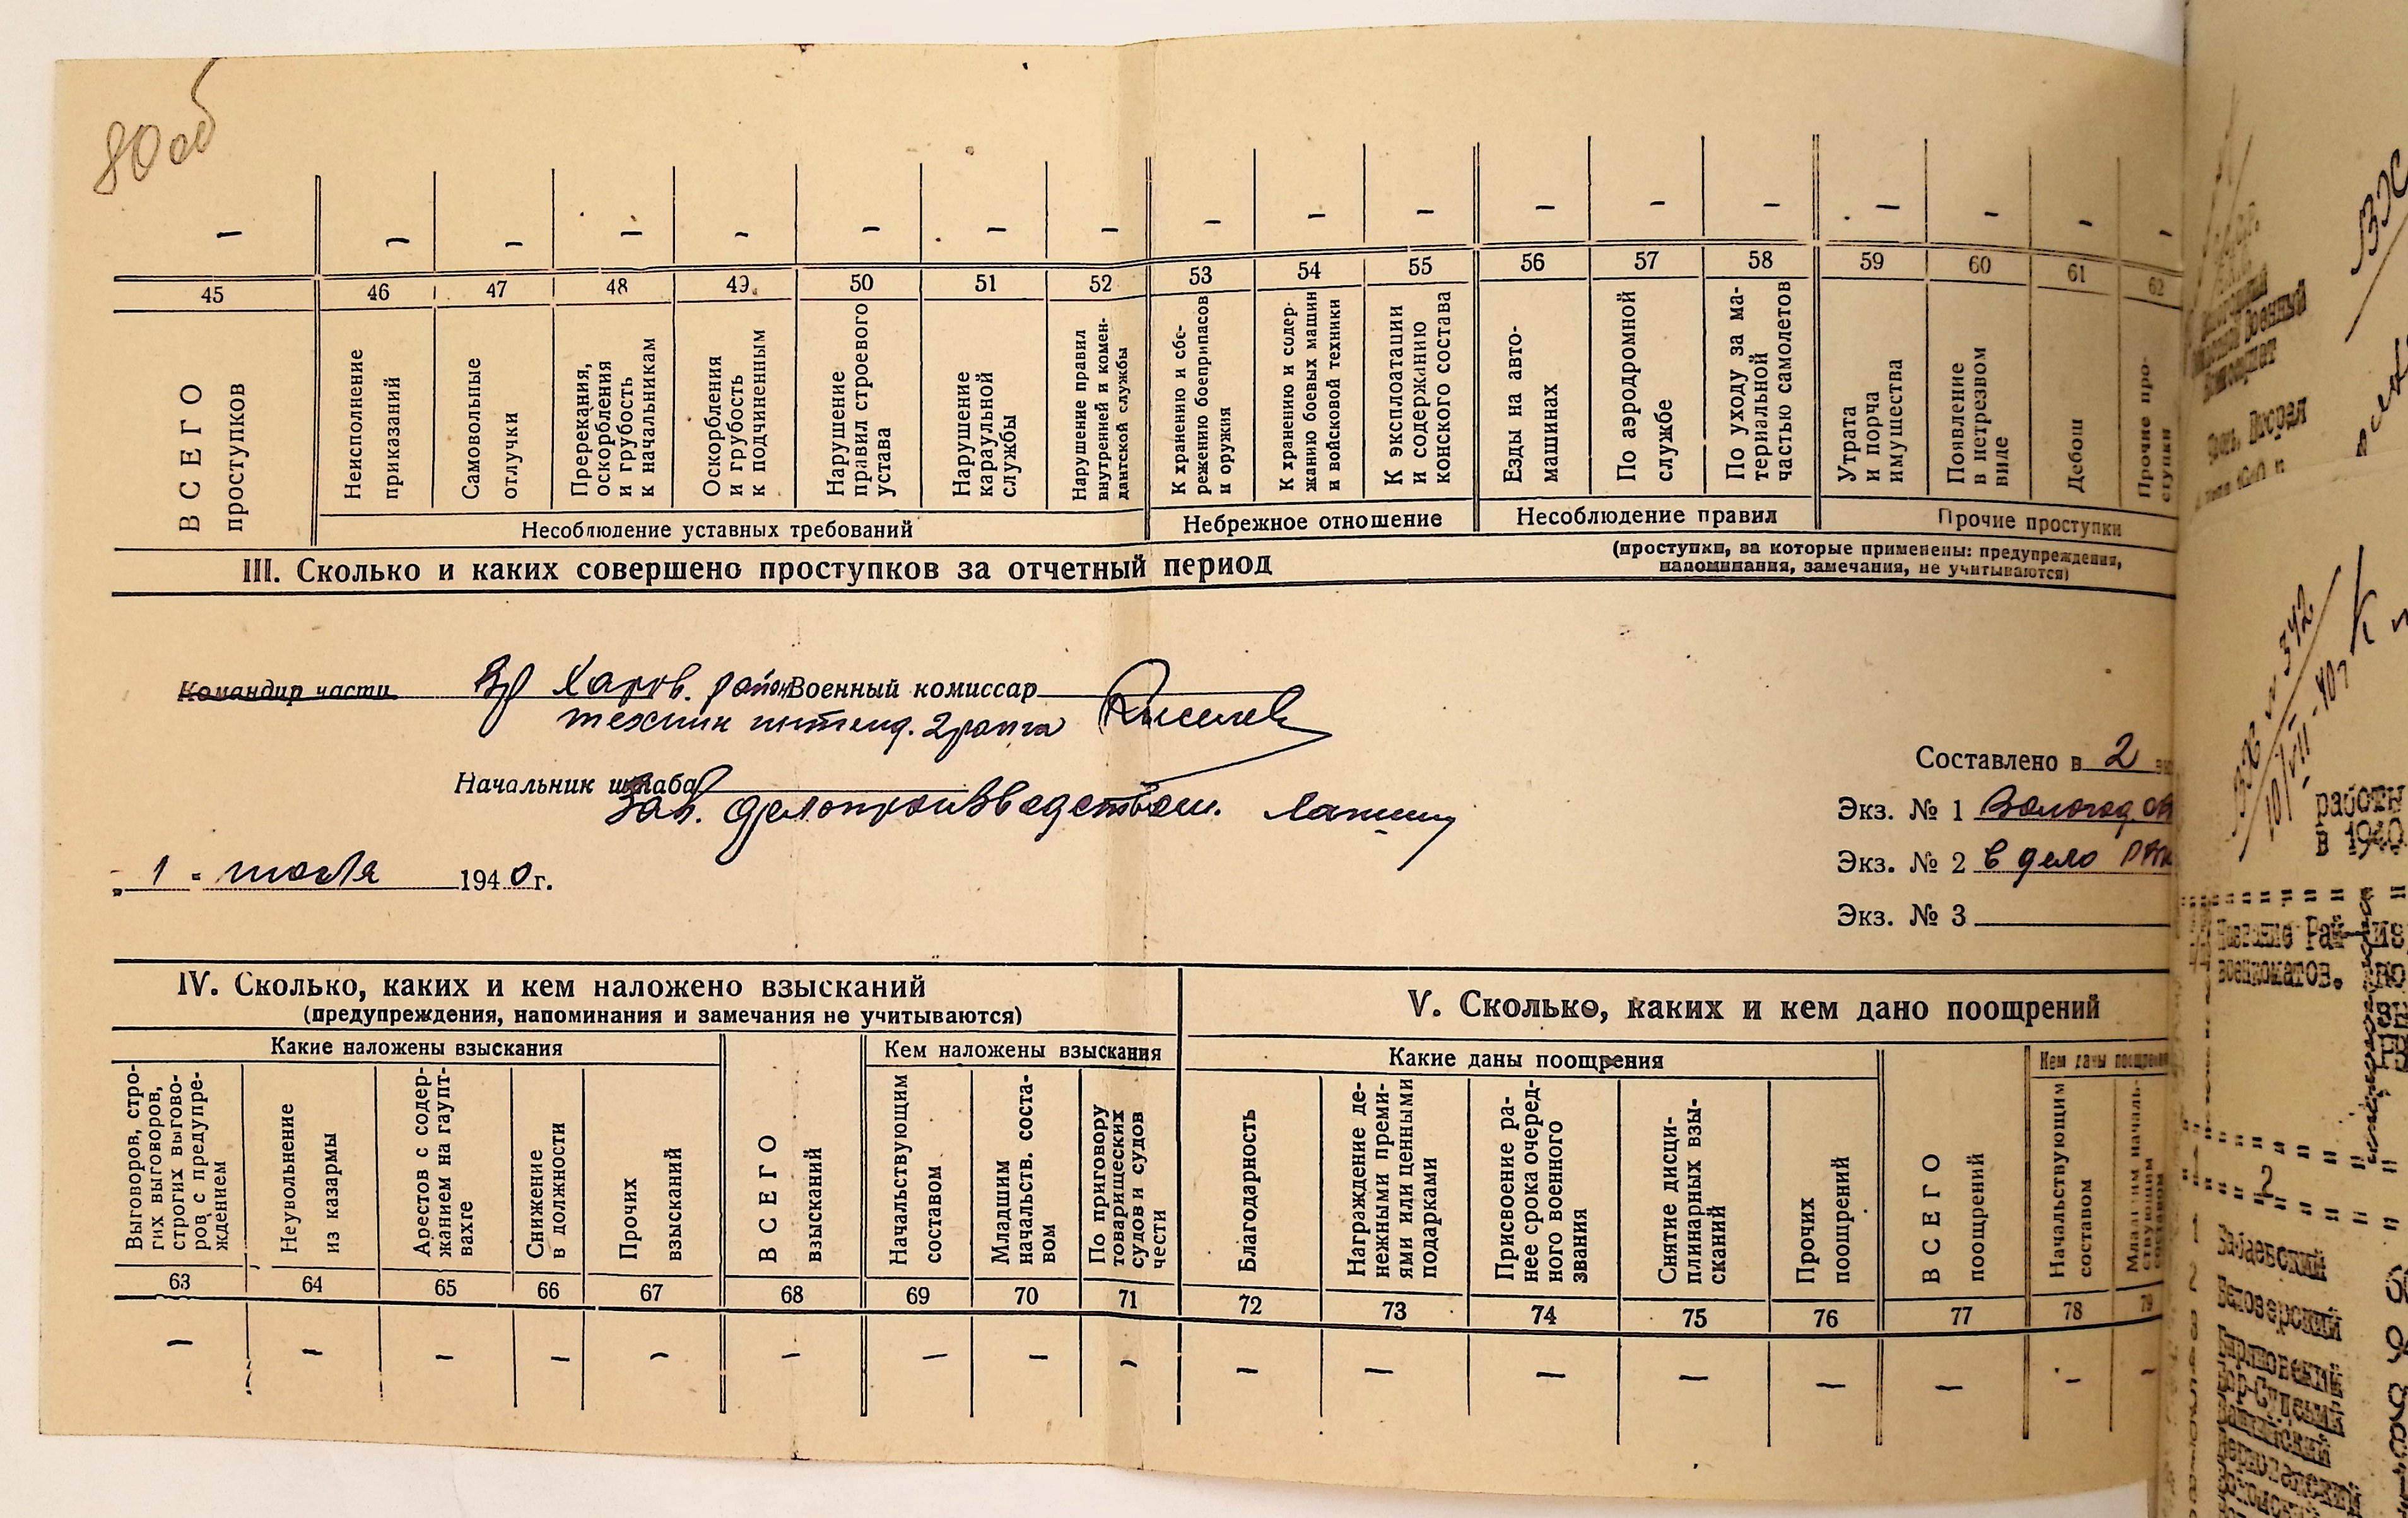 80 об
— — — — — — — — — — — — — — — — — —
45 46 47 48 49 50 51 52 53 54 55 56 57 58 59 60 61 62
ВСЕГО
проступков
Неисполнение
приказаний
Самовольные
отлучки
Пререкания,
оскорбления
и грубость
к начальникам
Оскорбления
и грубость
к подчиненным
Нарушение
правил строевого
устава
Нарушение
караульной
службы
Нарушение правил
внутренней и комен-
дантской службы
К хранению и сбе-
режению боеприпасов
и оружия
К хранению и содер-
жанию боевых машин
и войсковой техники
К эксплоатации
и содержанию
конского состава
Езды на авто-
машинах
По аэродромной
службе
По уходу за ма-
териальной
частью самолетов
Утрата
и порча
имущества
Появление
в нетрезвом
виде
Дебош
Прочие про-
ступки
Несоблюдение уставных требований
Небрежное отношение
Несоблюдение правил
Прочие проступки
III. Сколько и каких совершено проступков за отчетный период
(проступки, за которые применены: предупреждения,
напоминания, замечания, не учитываются)
Командир части Вр Харов. район Военный комиссар
техник интенд. 2 ранга Киселев
Начальник штаба
Зав. делопроизводством. Лапин
Составлено в 2 эк
Экз. № 1 Вологод. об
Экз. № 2 в дело РВК
Экз. № 3
„ 1 " июля 1940 г.
IV. Сколько, каких и кем наложено взысканий
(предупреждения, напоминания и замечания не учитываются)
Какие наложены взыскания
Кем наложены взыскания
Выговоров, стро-
гих выговоров,
строгих выгово-
ров с предупре-
ждением
Неувольнение
из казармы
Арестов с содер-
жанием на гаупт-
вахте
Снижение
в должности
Прочих
взысканий
ВСЕГО
взысканий
Начальствующим
составом
Младшим
начальств. соста-
вом
По приговору
товарищеских
судов и судов
чести
63 64 65 66 67 68 69 70 71
— — — — — — — — —
V. Сколько, каких и кем дано поощрений
Какие даны поощрения
Кем даны поощрения
Благодарность
Награждение де-
нежными преми-
ями или ценными
подарками
Присвоение ра-
нее срока очеред-
ного военного
звания
Снятие дисци-
плинарных взы-
сканий
Прочих
поощрений
ВСЕГО
поощрений
Начальствующим
составом
Младшим началь-
ствующим
составом
72 73 74 75 76 77 78 79
— — — — — — — —
работы
в 1940
Название Рай-
военкоматов.
2
Бабаевский
Белозерский